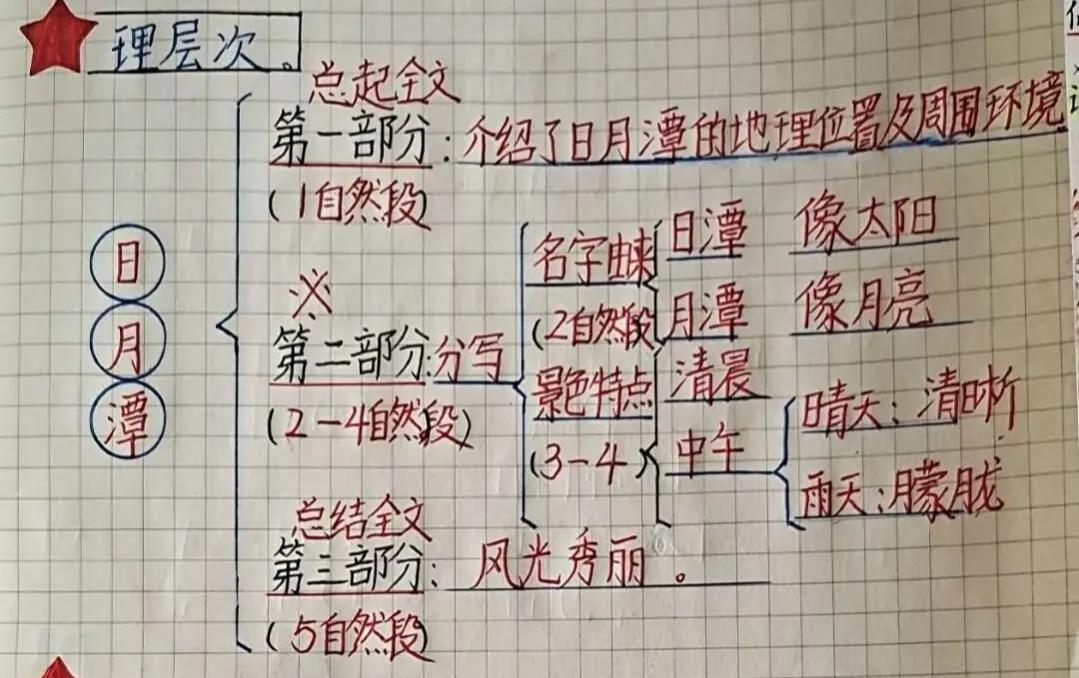 理层次。
总起全文
第一部分：介绍了日月潭的地理位置及周围环境
(1自然段)
日月潭
※
第二部分：分写
(2-4自然段)
名字由来
(2自然段
日潭 像太阳
月潭 像月亮
景色特点
(3-4)
清晨
中午
晴天：清晰
雨天：朦胧
总结全文
第三部分：风光秀丽。
(5自然段)